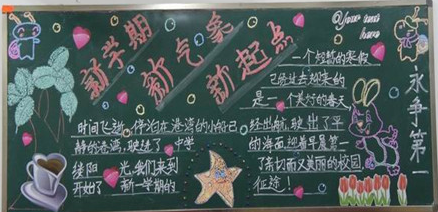 新学期
新气象
新起点
Your text
here
一个短暂的寒假
已经过去迎来的
是一个美好的春天
时间飞逝,停泊在港湾的小船已
静的港湾,驶进了
开始了新一学期的
光,我们来到
经出航,驶出了平
的海面,迎着早晨第一
了亲切而又美丽的校园
征途!
永争第一